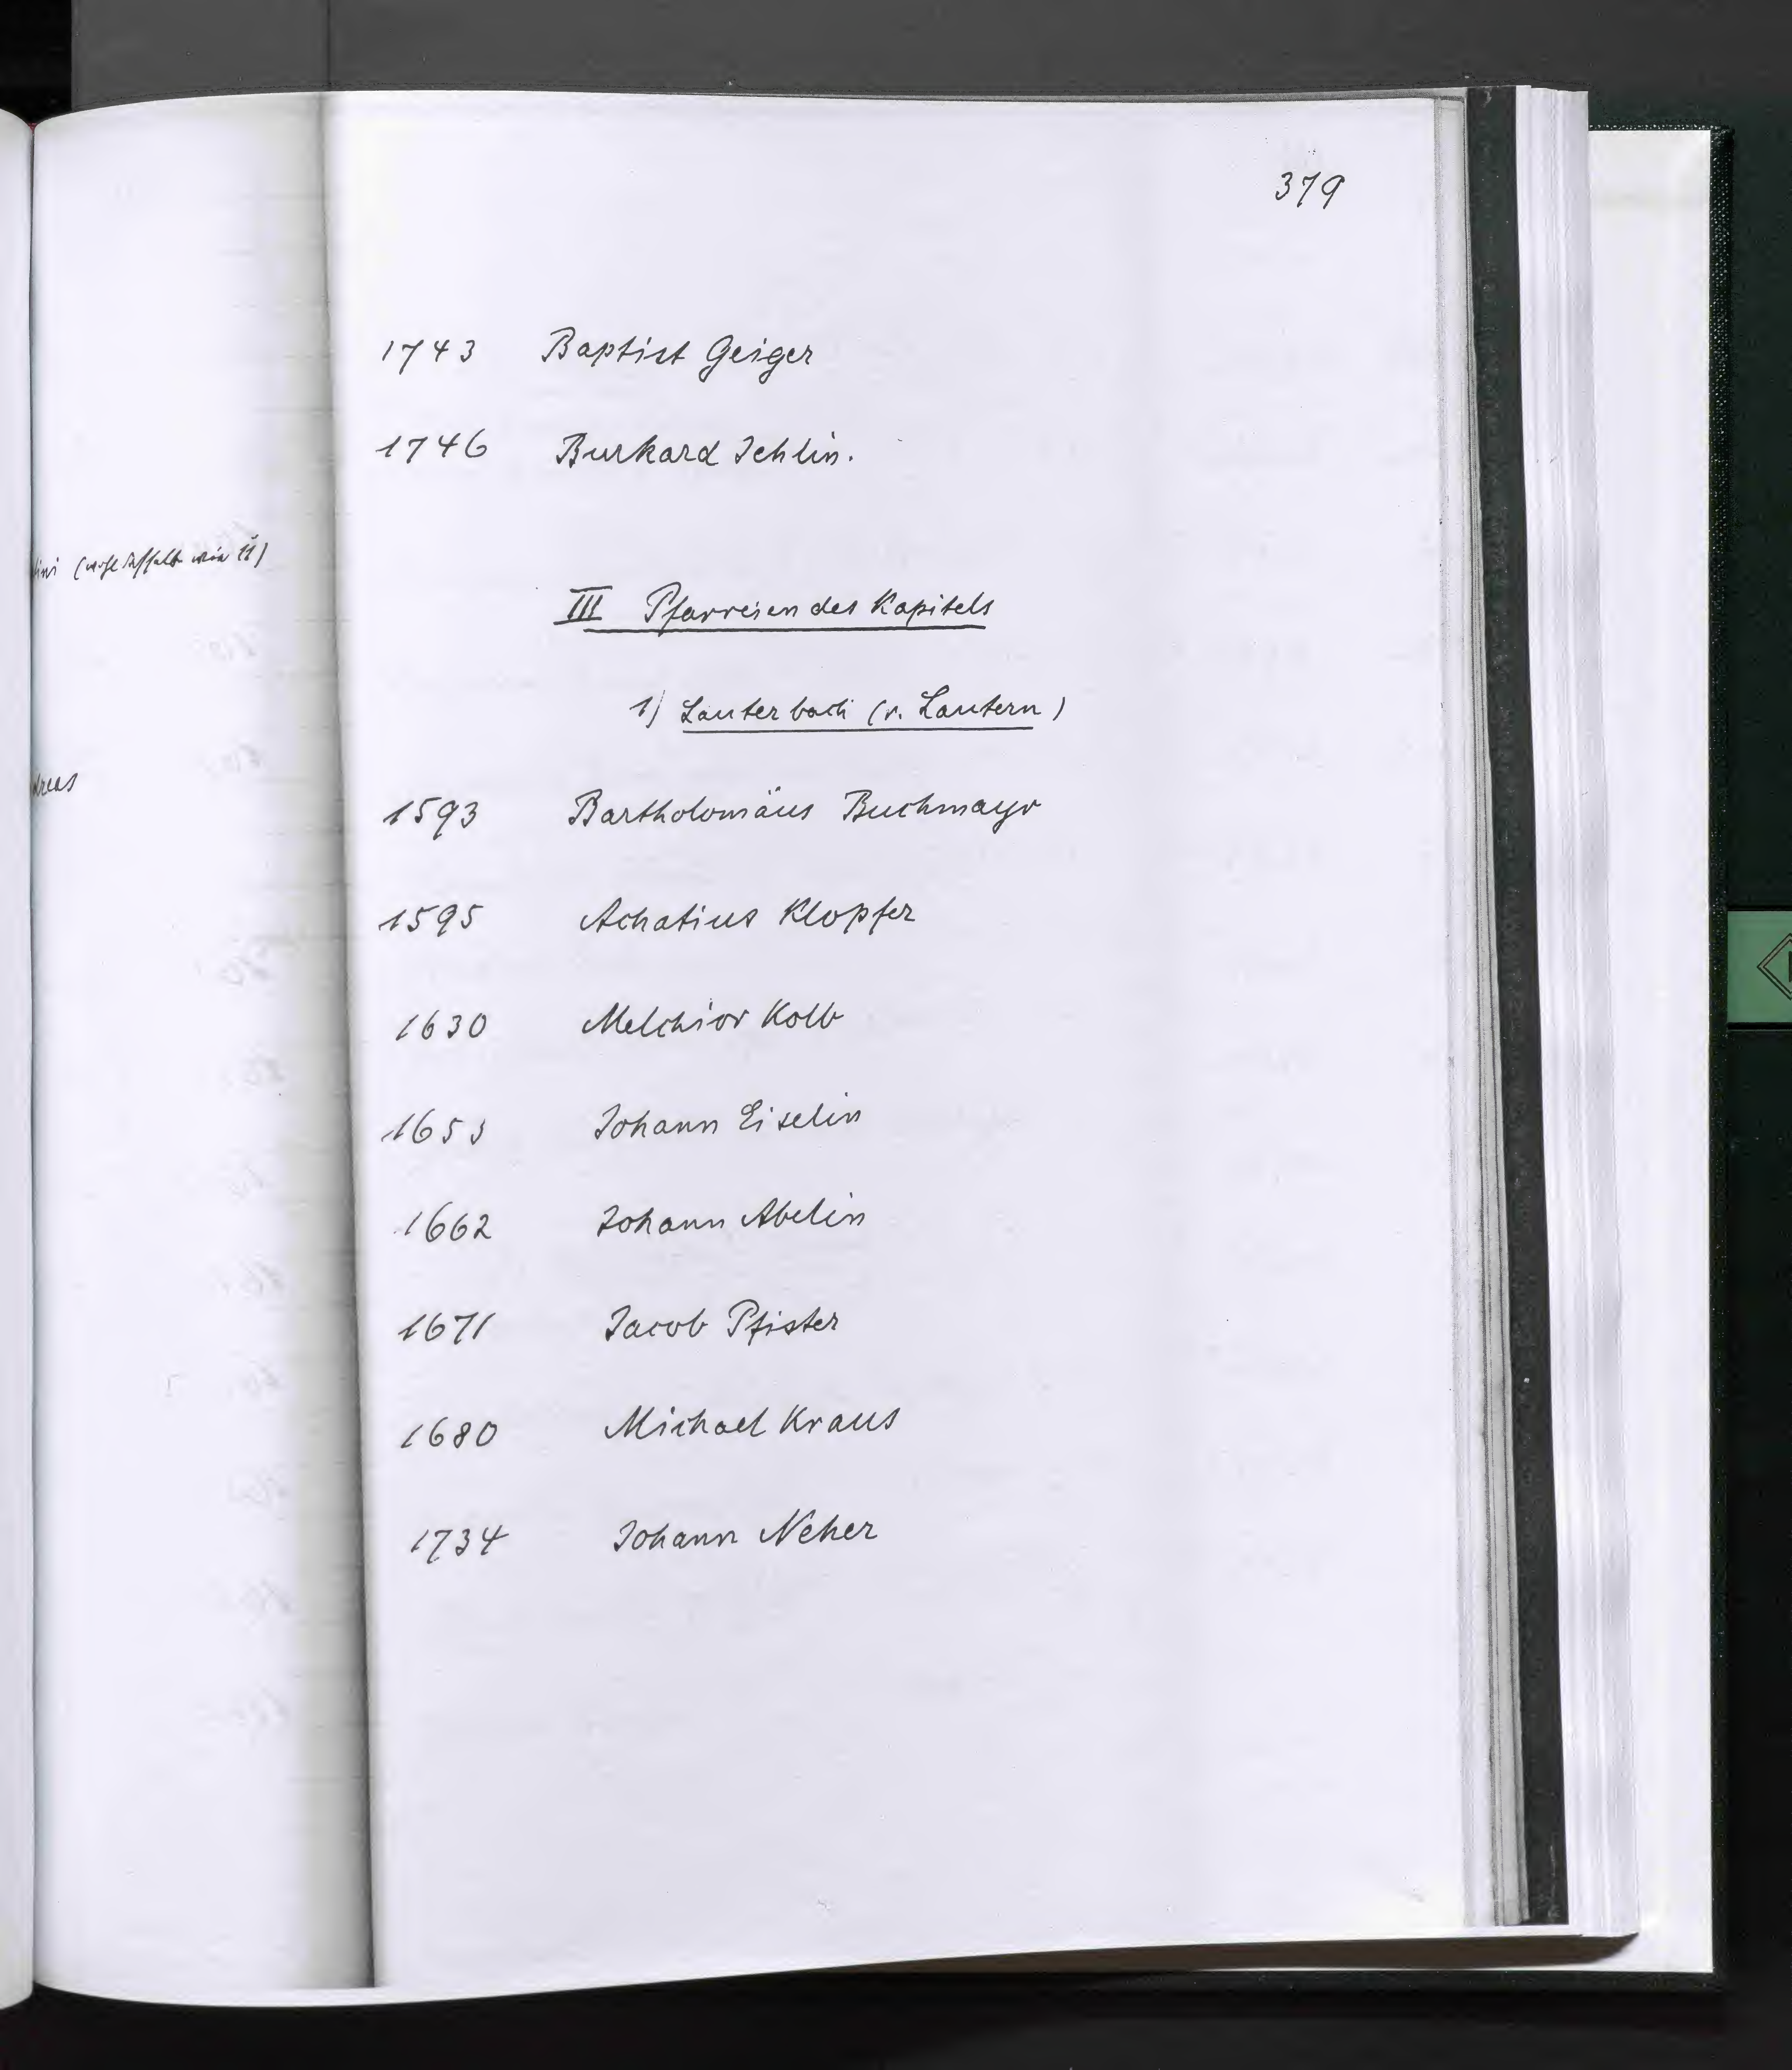 379
1743 Baptist Geiger
1746 Burkard Ichlin.
III Pfarreien des Kapitels
1) Lauterbach (v. Lautern)
1593 Bartholomäus Buchmayr
1595 Achatius Klopfer
1630 Melchior Kolb
1653 Johann Eiselin
1662 Johann Abelin
1671 Jacob Pfister
1680 Michael Kraus
1734 Johann Neher